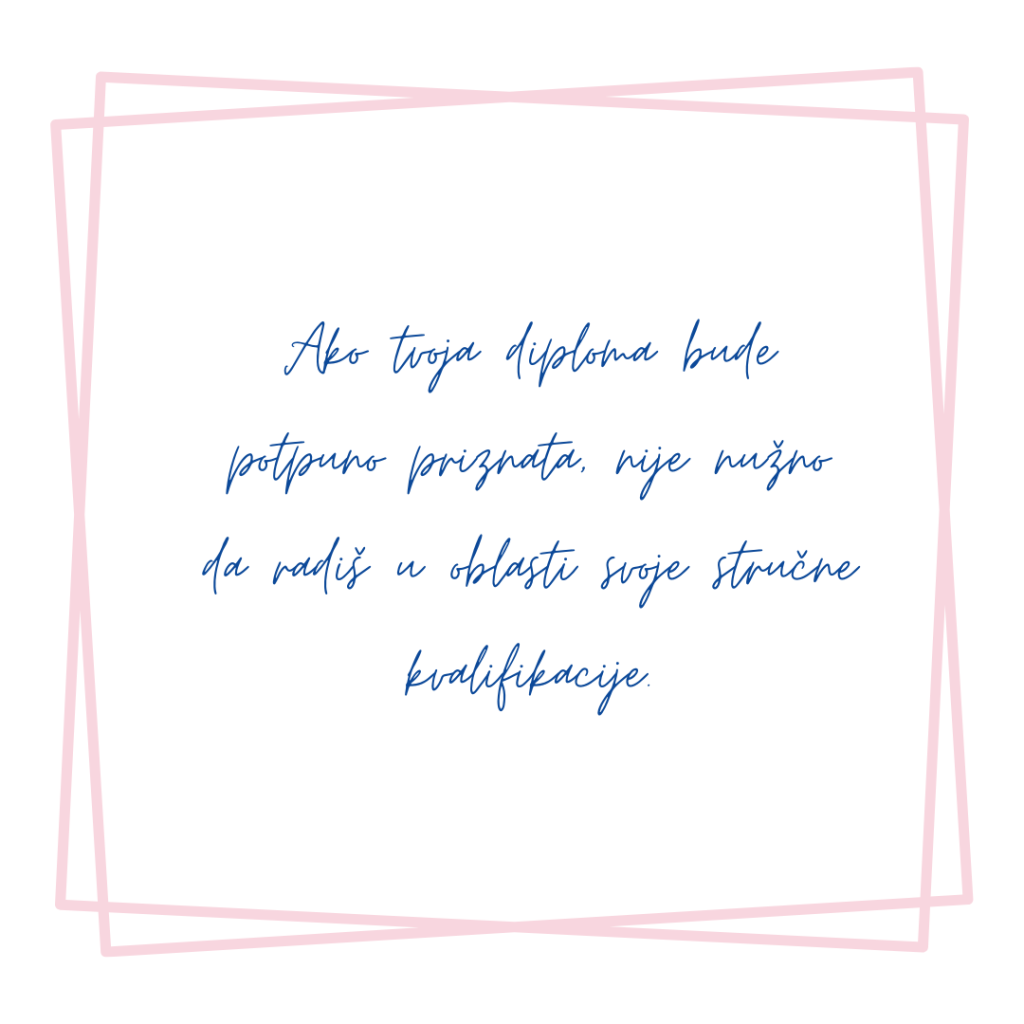 Ako tvoja diploma bude
potpuno priznata, nije nužno
da radiš u oblasti svoje stručne
kvalifikacije.